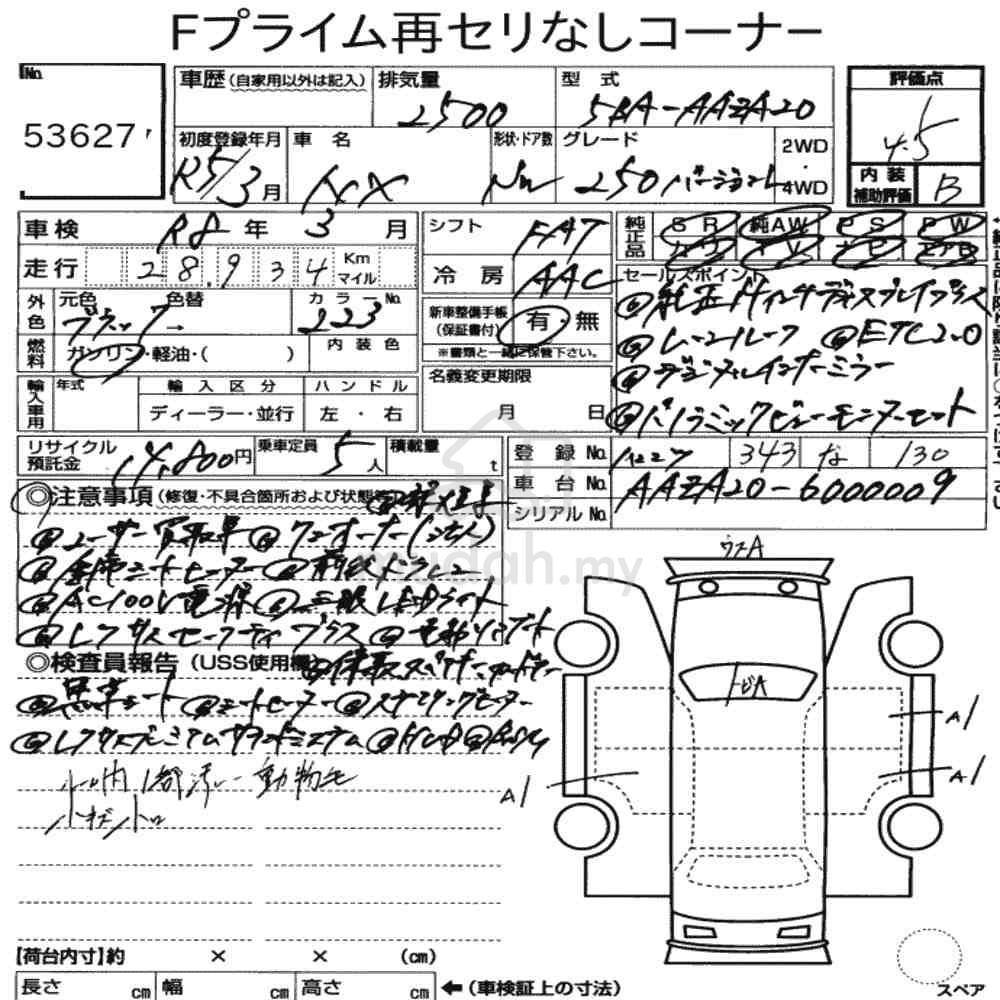 Fプライム再セリなしコーナー
No.
53627
車歴(自家用以外は記入)
排気量
2500
型 式
5BA-AAZA20
評価点
4.5
初度登録年月
R5/3月
車 名
NX
形状・ドア数
グレード
250 バージョンL
2WD
・
4WD
内 装
補助評価
B
車検
R8年3月
シフト
FAT
純正品
SR
純AW
PS
PW
走行
28.934
Km
マイル
冷 房
AAC
外色
元色
ブラック
→
色替
カラーNo.
223
新車整備手帳
(保証書付)
有・無
※書類と一緒に保管下さい。
セールスポイント
◎純正11インチディスプレイプラス
◎ムーンルーフ ◎ETC2.0
◎デジタルインナーミラー
◎パノラミックビューモニターセット
燃料
ガソリン・軽油・( )
内 装 色
輸入車用
年式
輸 入 区 分
ハ ン ド ル
ディーラー・並行
左 ・ 右
名義変更期限
月 日
リサイクル
預託金
14,800円
乗車定員
5人
積載量
t
登 録 No.
343
な
130
車 台 No.
AAZA20-6000009
シリアル No.
◎注意事項(修復・不具合箇所および状態等)
◎ユーザー買取車 ◎ワンオーナー(法人)
◎全席シートヒーター ◎前後ドラレコ
◎AC100V電源 ◎三眼LEDライト
◎レクサスセーフティプラス ◎電動リアゲート
◎検査員報告(USS使用欄)
◎黒革シート ◎シートヒーター ◎ステアリングヒーター
◎レクサスプレミアムサウンドシステム ◎HUD
内1部汚レ 動物毛
小キズ小凹
ウスA
トビA
A1
A1
A1
【荷台内寸】約 × × (cm)
長さ cm
幅 cm
高さ cm
←(車検証上の寸法)
スペア
mudah.my